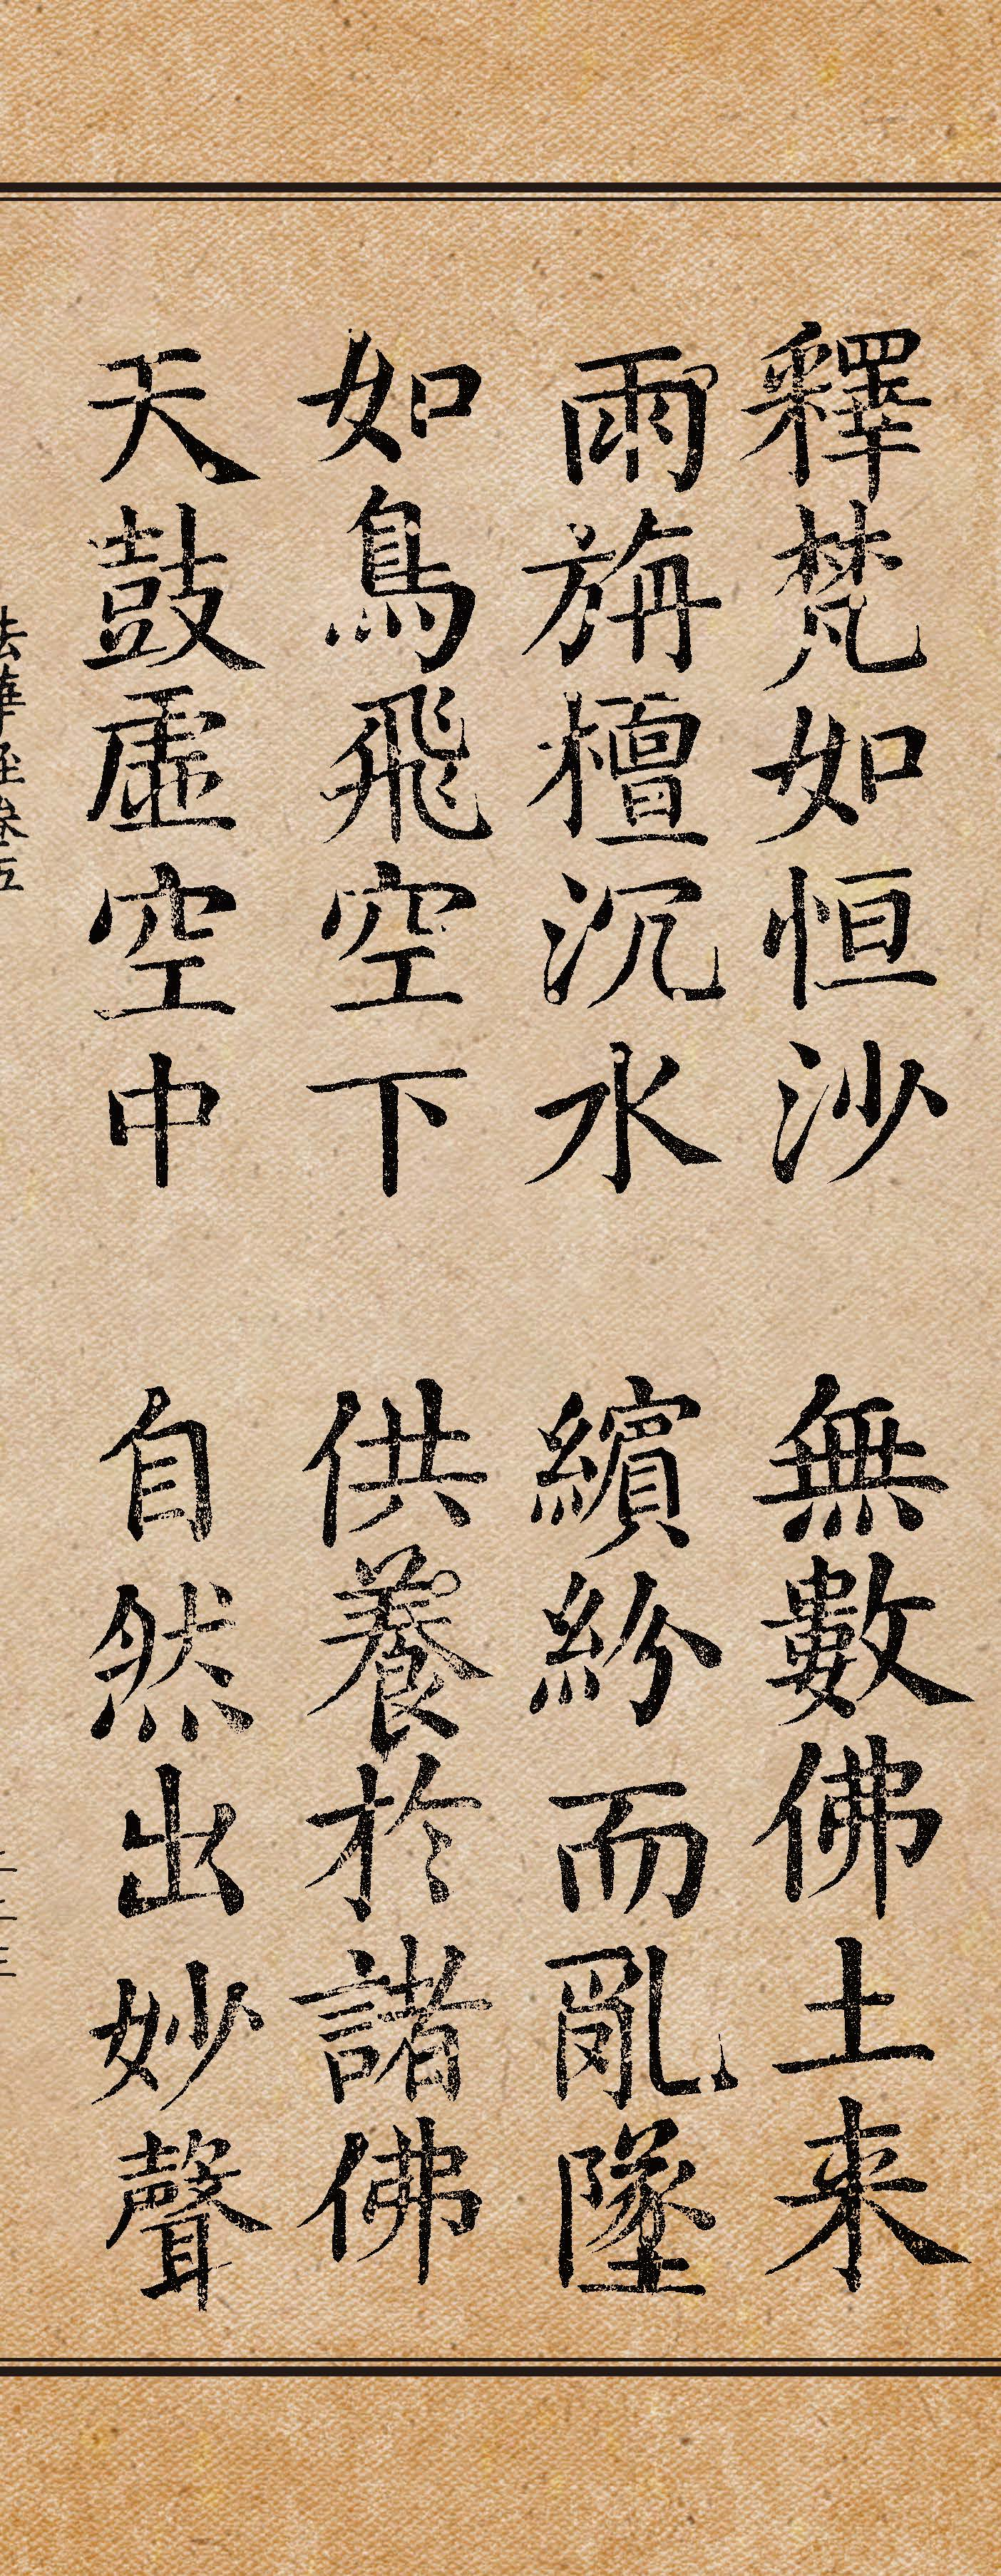 釋梵如恒沙 無數佛土来
雨旃檀沉水 繽紛而亂墜
如鳥飛空下 供養於諸佛
天鼓虛空中 自然出妙聲
法華經卷五